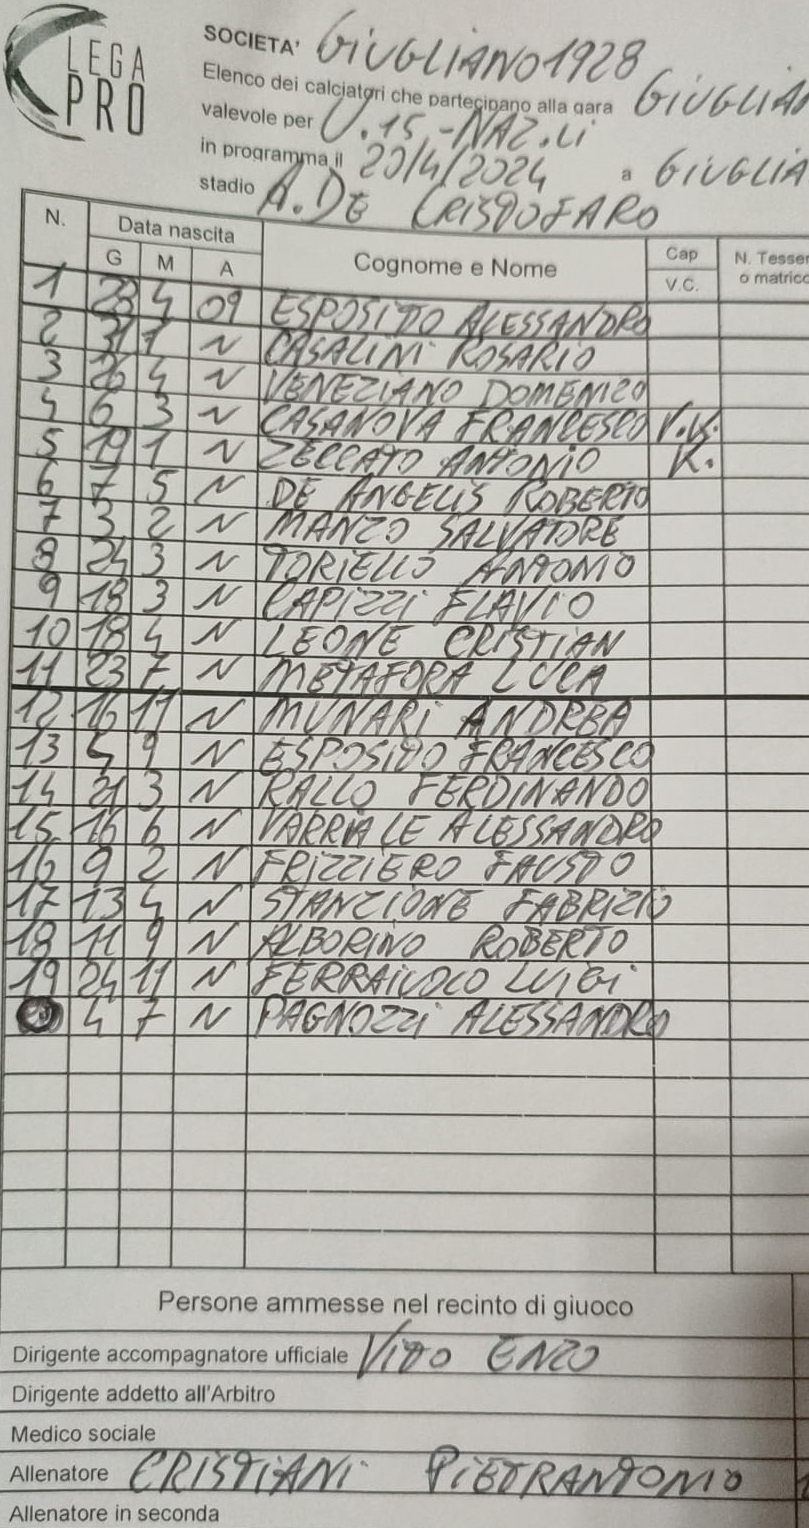 LEGA
PRO
SOCIETA' GIUGLIANO 1928
Elenco dei calciatori che partecipano alla gara GIUGLIA
valevole per U.15 - NAZ.LI
in programma il 20/4/2024 a GIUGLIA
stadio A. DE CRISTOFARO
N. Data nascita Cognome e Nome Cap N. Tesser
G M A V.C. o matric
1 28 4 09 ESPOSITO ALESSANDRO
2 31 1 N CASALINI ROSARIO
3 26 4 N VENEZIANO DOMENICO
4 6 3 N CASANOVA FRANCESCO V.K.
5 19 1 N ZECCATO ANTONIO K.
6 7 5 N DE ANGELIS ROBERTO
7 3 2 N MANZO SALVATORE
8 24 3 N TORIELLO ANTONIO
9 18 3 N CAPIZZI FLAVIO
10 18 4 N LEONE CRISTIAN
11 23 7 N METAFORA LUCA
12 16 11 N MUNARI ANDREA
13 4 9 N ESPOSITO FRANCESCO
14 21 3 N RALLO FERDINANDO
15 16 6 N VARRIALE ALESSANDRO
16 9 2 N FRIZZIERO FAUSTO
17 13 4 N STANZIONE FABRIZIO
18 11 9 N ALBORINO ROBERTO
19 24 11 N FERRAIUOLO LUIGI
4 7 N PAGNOZZI ALESSANDRO
Persone ammesse nel recinto di giuoco
Dirigente accompagnatore ufficiale VITO ENZO
Dirigente addetto all'Arbitro
Medico sociale
Allenatore CRISTIANI PIETRANTONIO
Allenatore in seconda